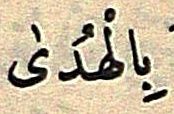 بِالْهُدَىٰ